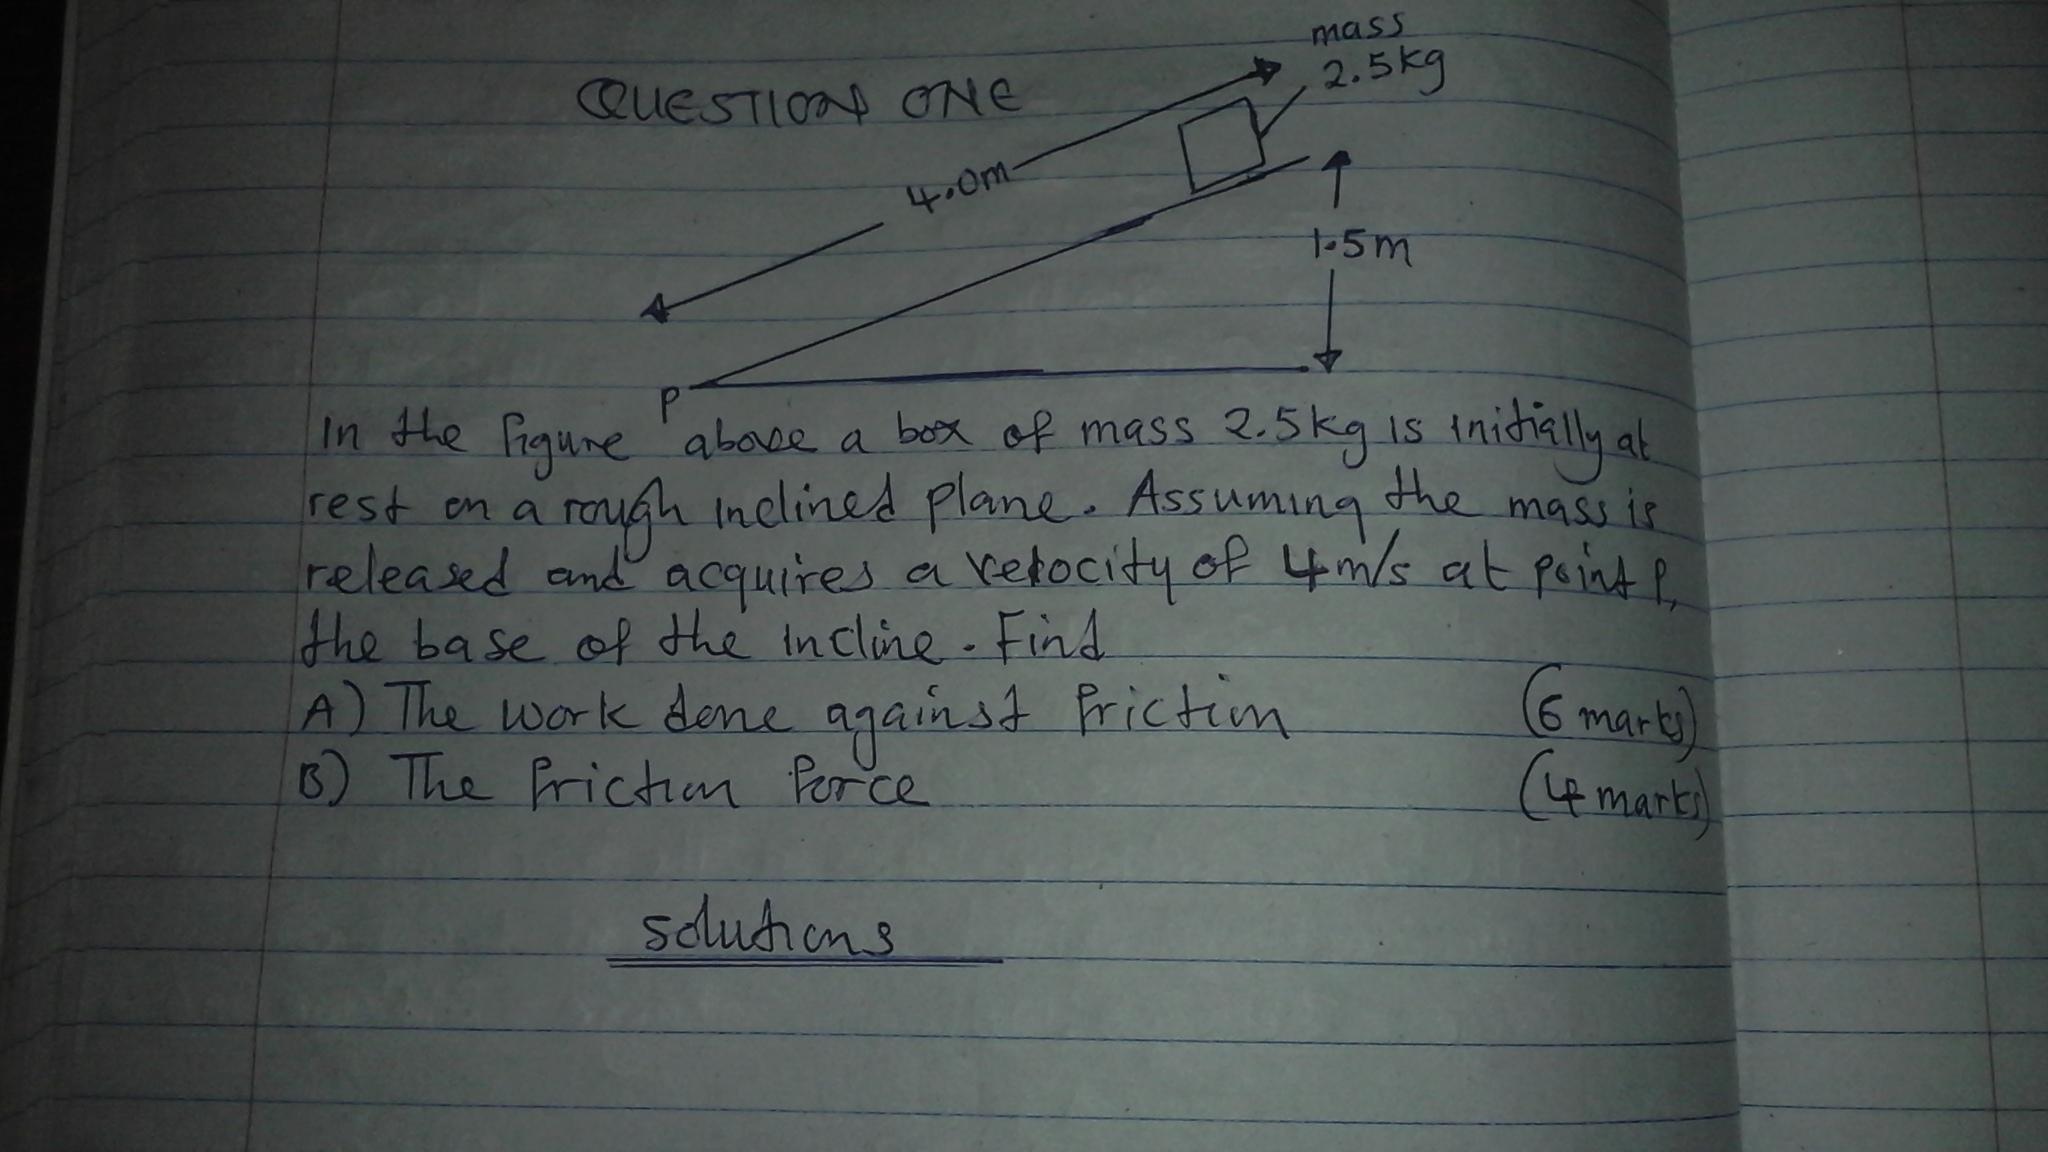 mass
2.5kg
QUESTION ONE
4.0m
1.5m
P
In the figure above a box of mass 2.5kg is initially at
rest on a rough inclined plane. Assuming the mass is
released and acquires a velocity of 4m/s at point P,
the base of the incline. Find
A) The work done against friction (6 marks)
B) The friction force (4 marks)
solutions